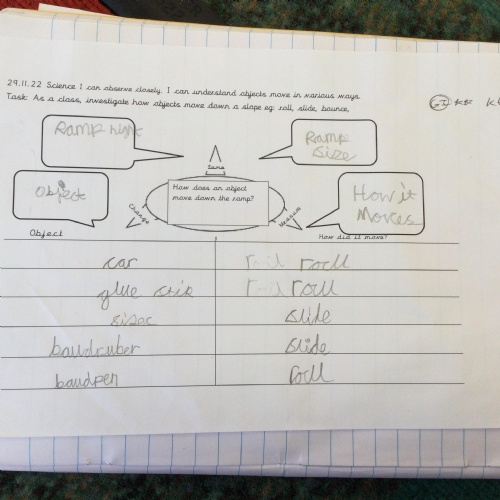 29.11.22 Science I can observe closely. I can understand objects move in various ways.
Task: As a class, investigate how objects move down a slope eg: roll, slide, bounce,
GD
Ramp hight
Ramp
size
Same
Object
How does an object
move down the ramp?
How it
Moves
Change
Measure
Object
How did it move?
car roll roull
glue stik roll roull
siser slide
baudruber slide
baudpen roll